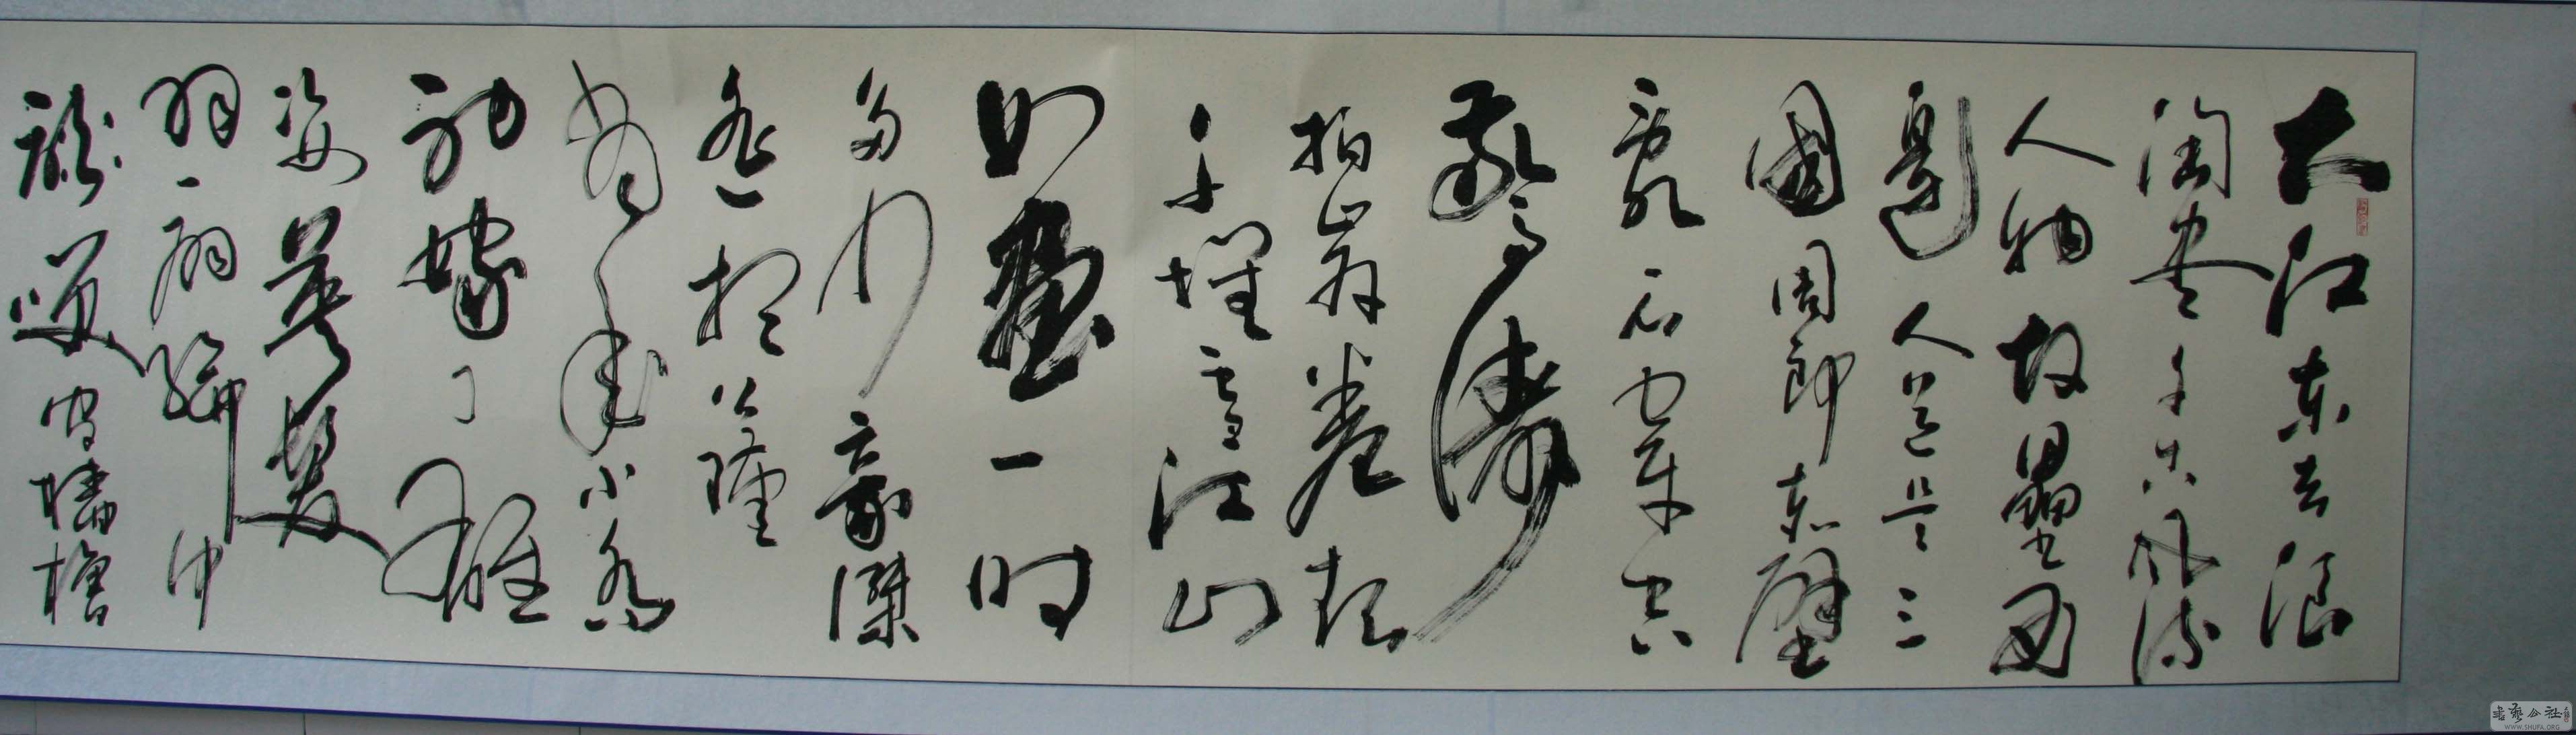 大江东去浪
淘尽千古风流
人物故垒西
边人道是三
国周郎赤壁
乱石穿空
惊涛
拍岸卷起
千堆雪江山
如画一时
多少豪杰
遥想公瑾
当年小乔
初嫁了雄
姿英发
羽扇纶巾
谈笑间樯橹
书艺公社
WWW.SHUFA.ORG